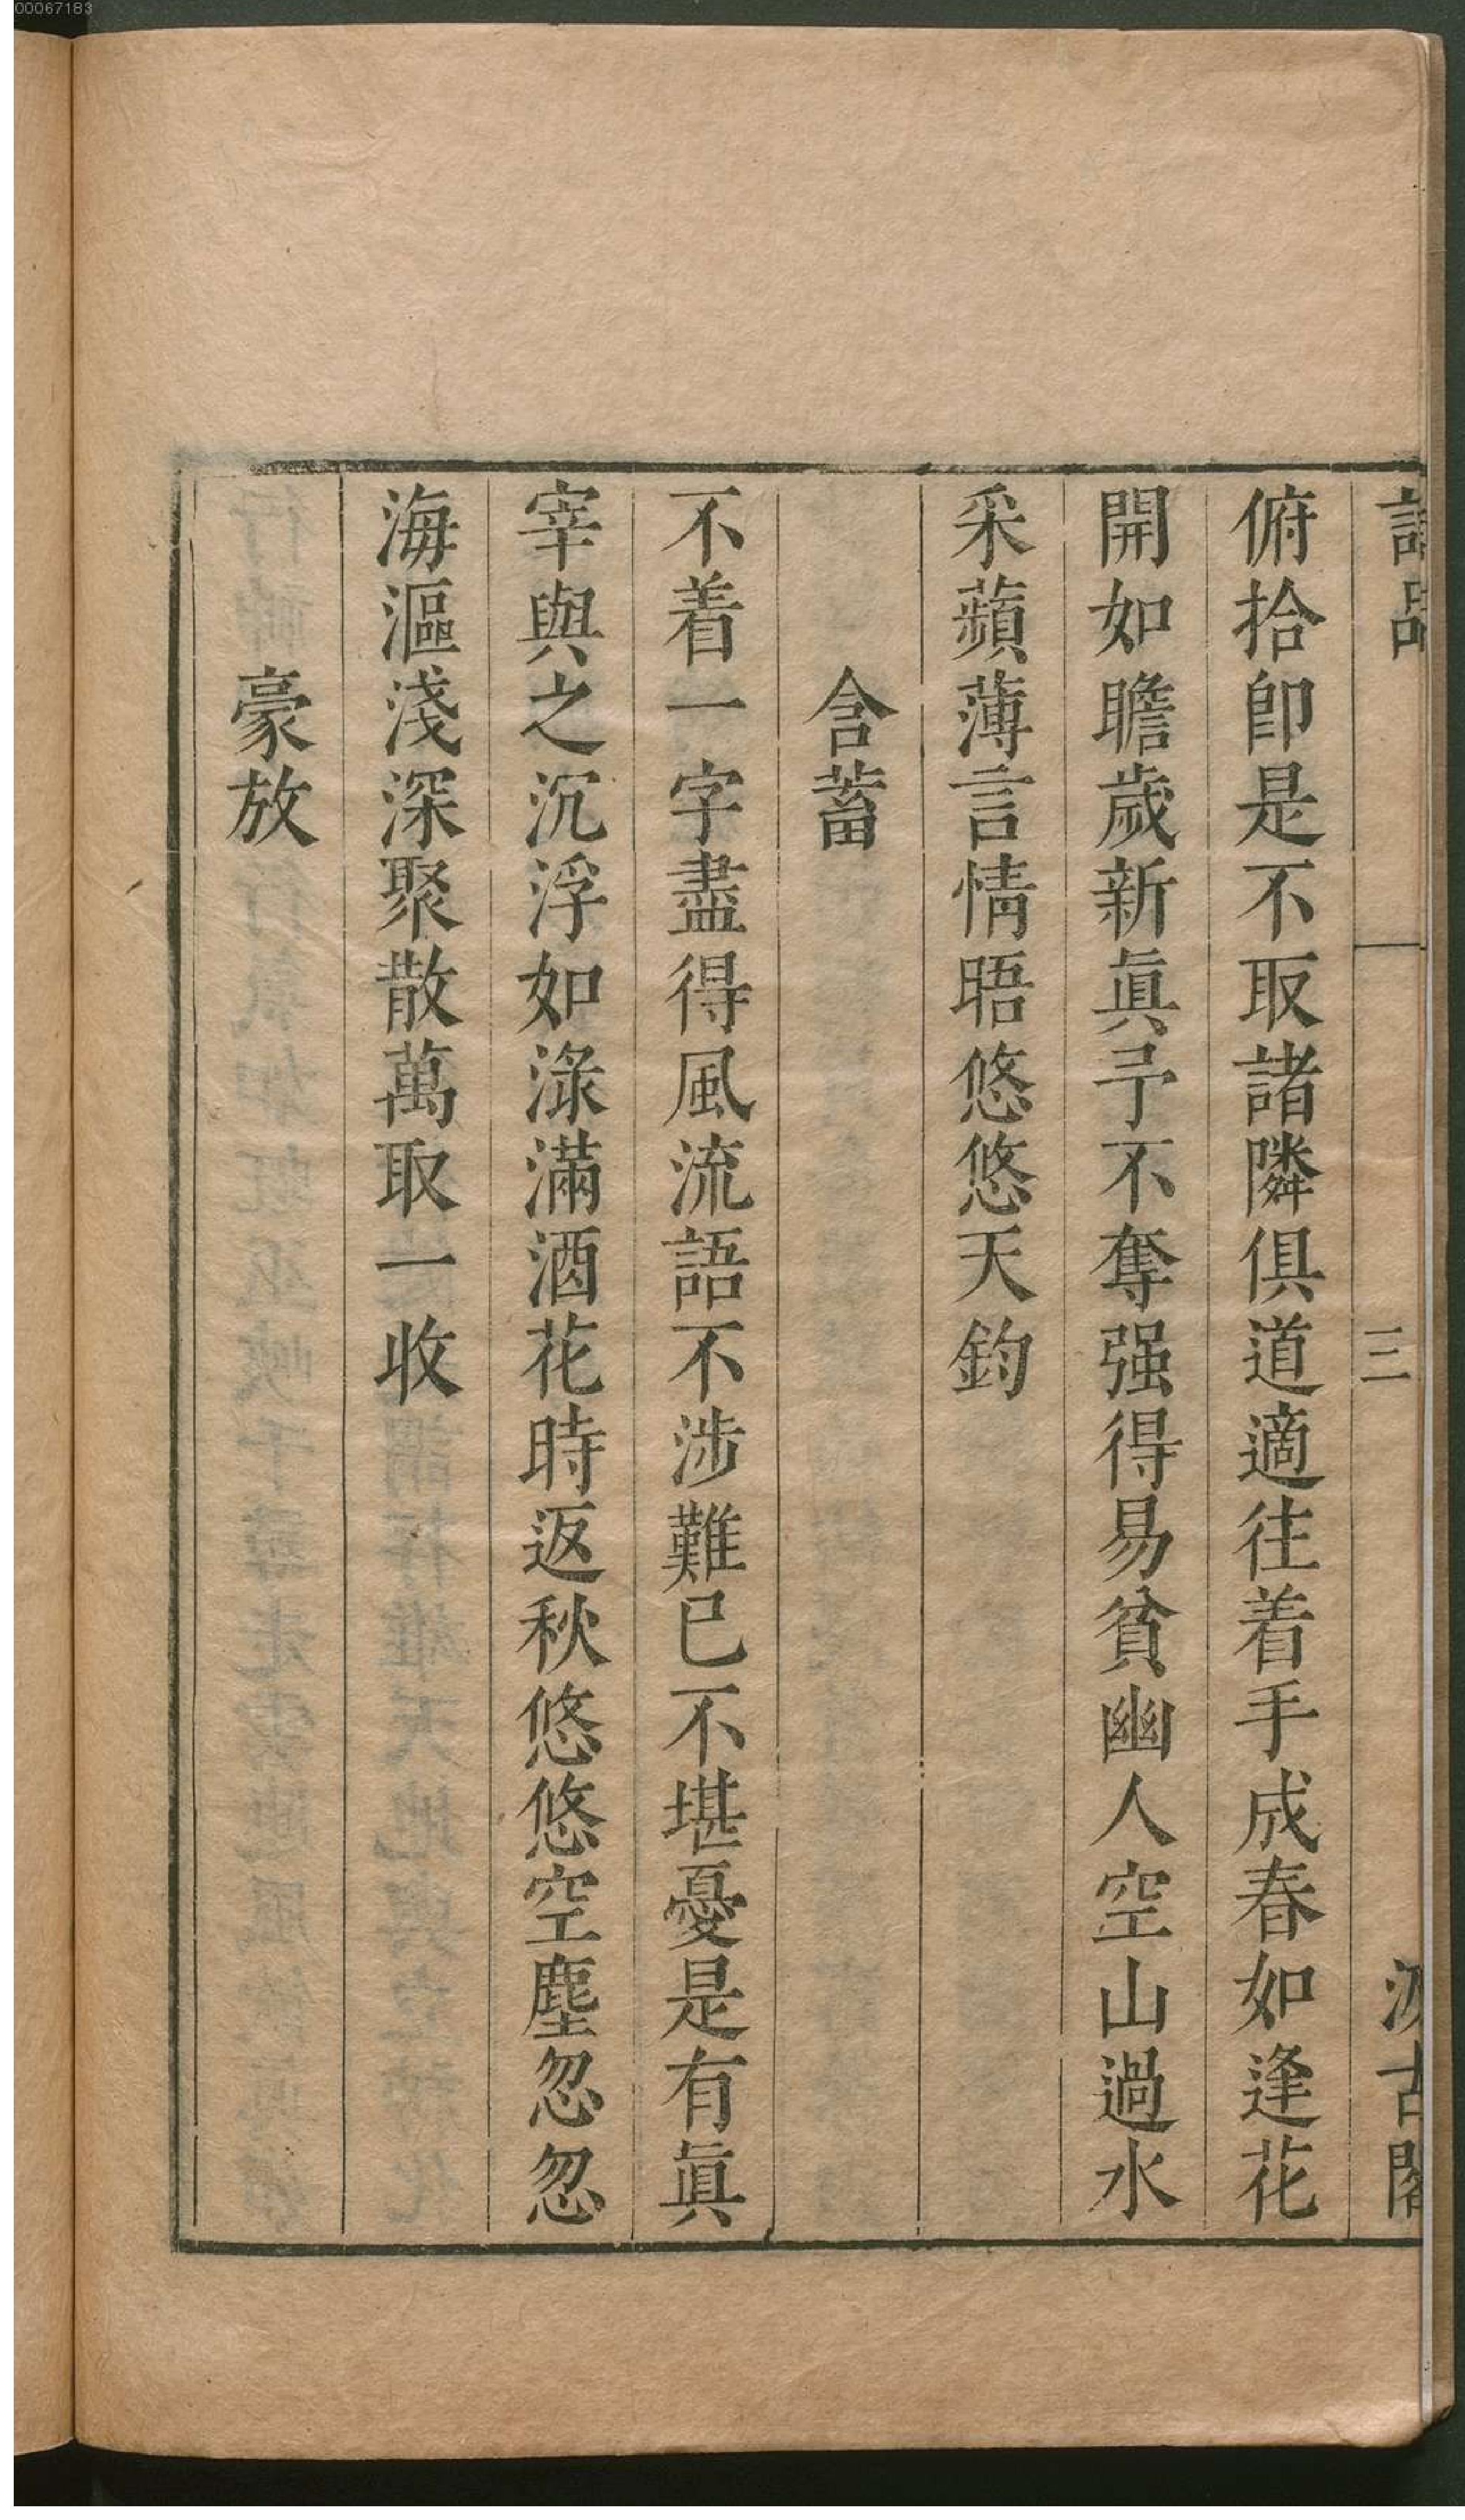 00067183
詩品
三
汲古閣
俯拾卽是不取諸隣俱道適往着手成春如逢花
開如瞻歲新眞予不奪强得易貧幽人空山過水
采蘋薄言情晤悠悠天鈞
含蓄
不着一字盡得風流語不涉難已不堪憂是有眞
宰與之沉浮如淥滿酒花時返秋悠悠空塵忽忽
海漚淺深聚散萬取一收
豪放